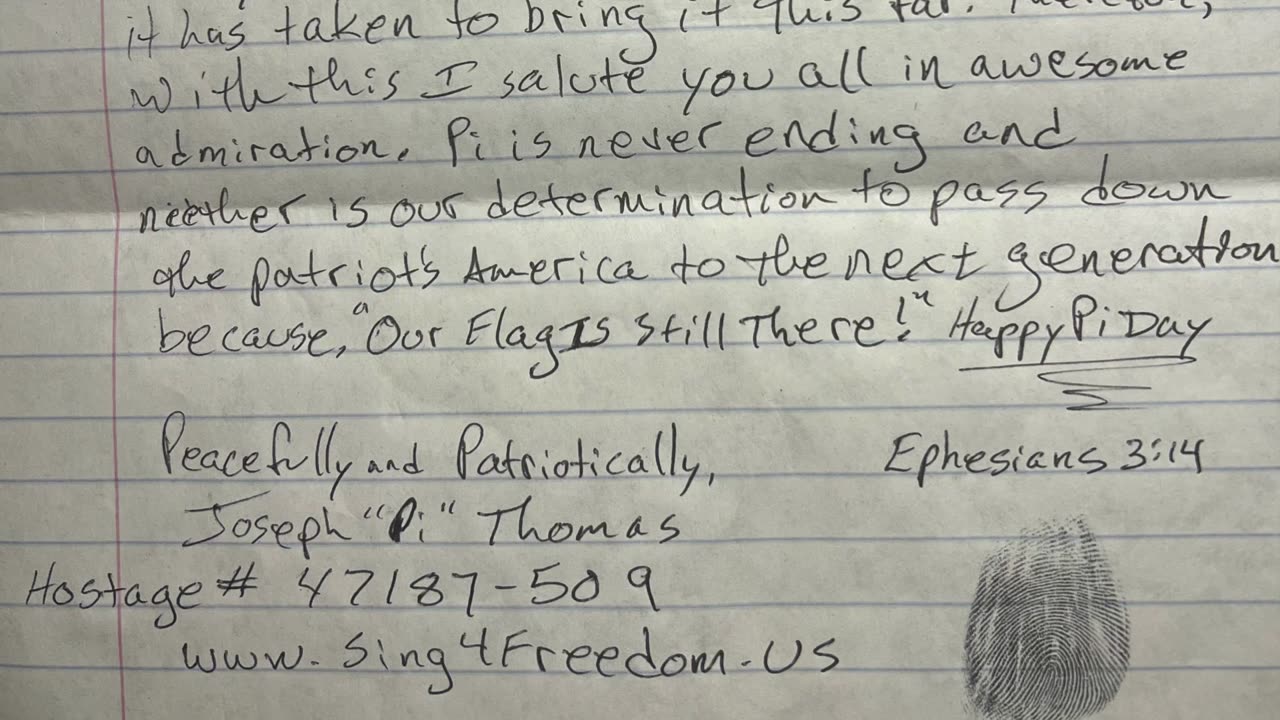 it has taken to bring it this far. Therefore,
with this I salute you all in awesome
admiration. Pi is never ending and
neither is our determination to pass down
the patriot's America to the next generation
because, "Our Flag Is Still There!" Happy Pi Day
Peacefully and Patriotically,
Ephesians 3:14
Joseph "Pi" Thomas
Hostage # 47187-509
www.Sing4Freedom.US